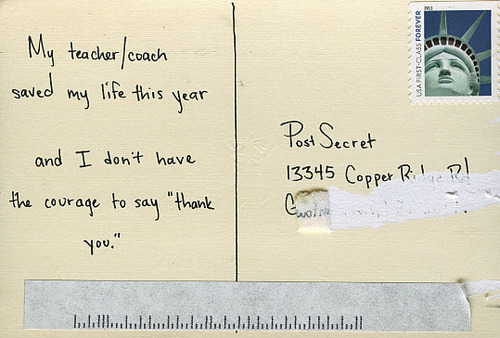 My teacher/coach
saved my life this year
and I don't have
the courage to say "thank
you."
2011
USA FIRST-CLASS FOREVER
PostSecret
13345 Copper Rd